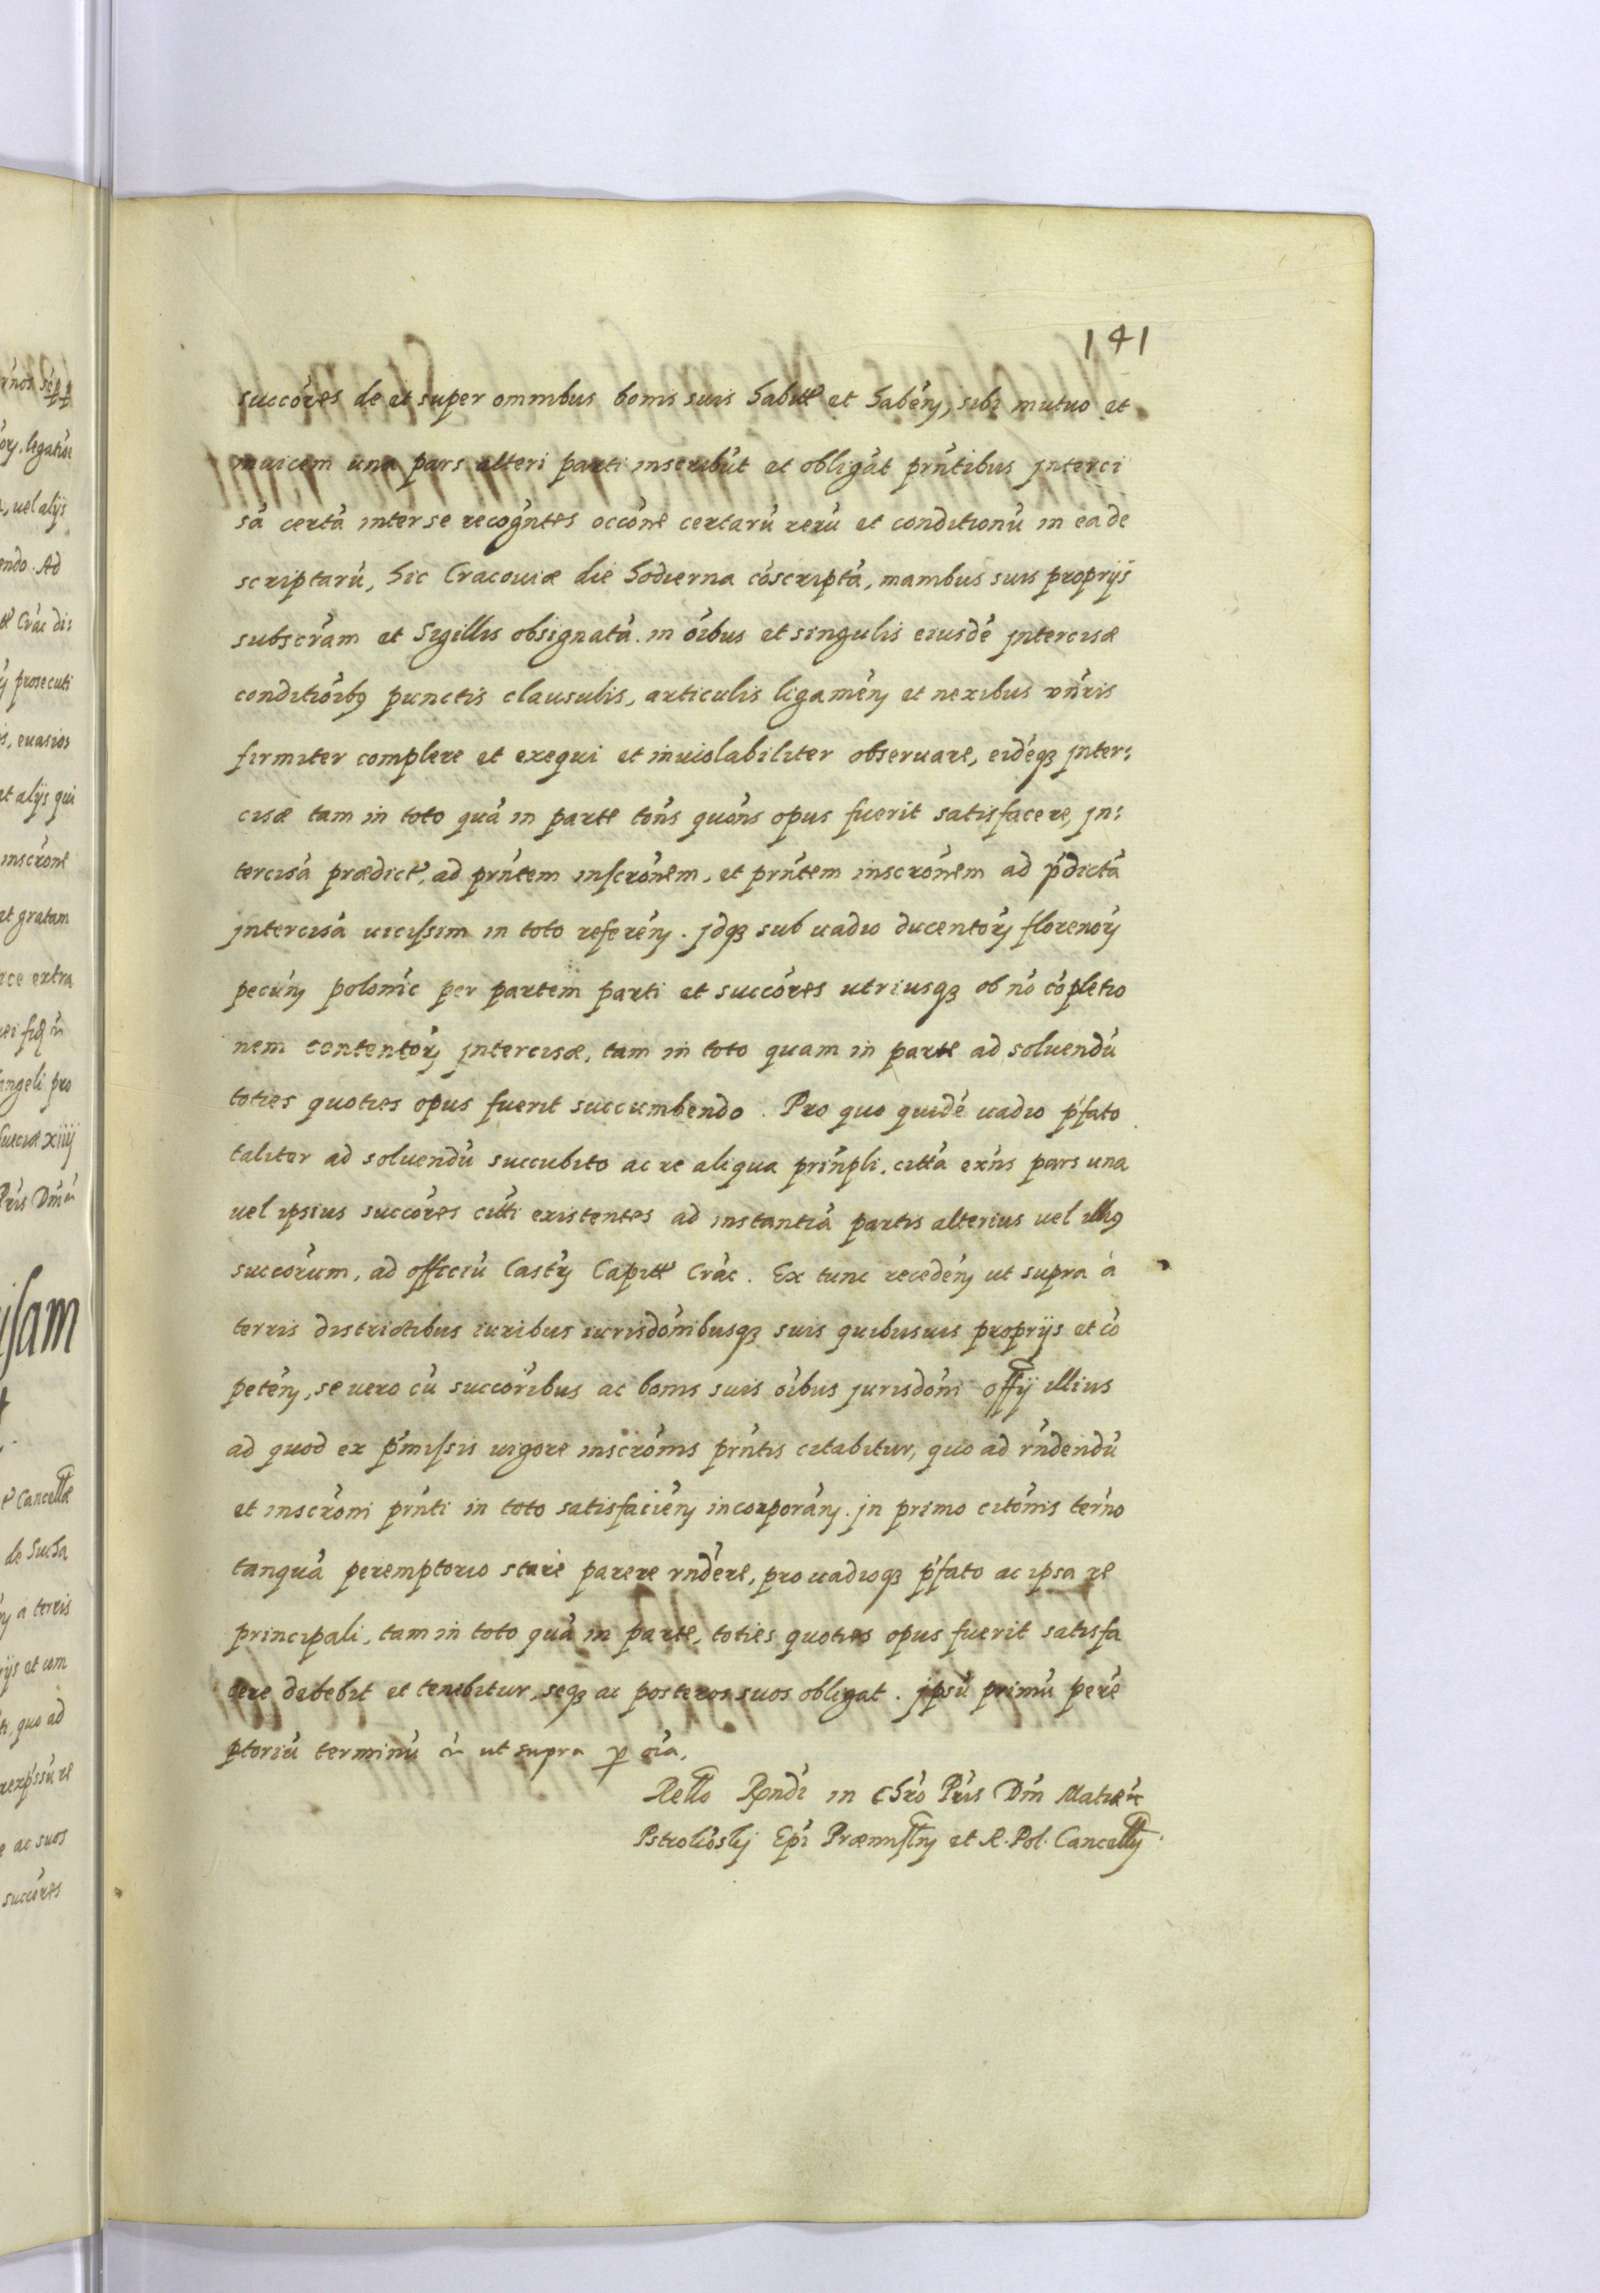 141
succóres de et super omnibus bonis suis habitt et habéñ, sibi mutuo et
inuicem una pars alteri parti inscribũt et obligãt pr̃ntibus interci
sã certã inter se recogñtes occõne certarũ rerũ et conditionũ in ea de
scriptarũ, hic Cracoviæ die hodierna cõscriptã, manibus suis proprijs
subscr̃am et Sigillis obsignatã. in õibus et singulis eiusdẽ intercisæ
conditiõibꝫ punctis clausulis, articulis ligaméñ et nexibus
firmiter complere et exequi et inuiolabiliter obseruare, eidẽqꝫ inter:
cisæ tam in toto quã in parte tõns quõns opus fuerit satisfacere, jn:
tercisã prædict, ad prñtem inscrõnem, et prñtem inscrõnem ad p̃dictã
jntercisã uicissim in toto referéñ. jdqꝫ sub uadio ducentorꝫ florenorꝫ
pecuñ polonic per partem parti et succóres utriusqꝫ ob nõ cõpletio
nem contentorꝫ jntercisæ, tam in toto quam in parte ad soluendũ
toties quoties opus fuerit succumbendo. Pro quo quidẽ uadio p̃fato
taliter ad soluendũ succubito ac re aliqua prĩnpli, citta exñs pars una
uel ipsius succóres citti existentes ad instantiã partis alterius uel illiꝰ
succorum, ad officiũ Castrñ Capitt Crac. Ex tunc recedéñ ut supra á
terris districtibus iuribus iurisdõnibusqꝫ suis quibusuis proprijs et cõ
petéñ, se uero cũ succorĩbus ac bonis suis õibus jurisdõni offij illius
ad quod ex p̃missis uigore inscrõnis prñtis citabitur, quo ad rñdendũ
et inscrõni prñti in toto satisfaciéñ incorporáñ. jn primo citõnis termo
tanquã peremptorio stare parere rñdere, pro uadioqꝫ p̃fato ac ipsa re
principali, tam in toto quã in parte, toties quoties opus fuerit satisfa
cere debebit et tenebitur, seqꝫ ac posteros suos obligat. jpsũ primũ perẽ
ptoriũ terminũ ut supra õia.
Rello Rndi in Chro Pris Dm Mathiæ
Pstrokoskij Epi Præmisln et R. Pol. Cancellrij.